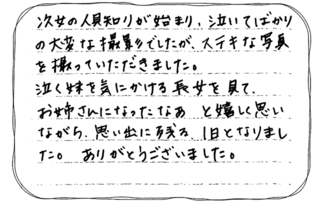 次女の人見知りが始まり、泣いてばかり
の大変な撮影でしたが、ステキな写真
を撮っていただきました。
泣く妹を気にかける長女を見て、
お姉さんになったなあ と嬉しく思い
ながら、思い出に残る、1日となりまし
た。 ありがとうございました。